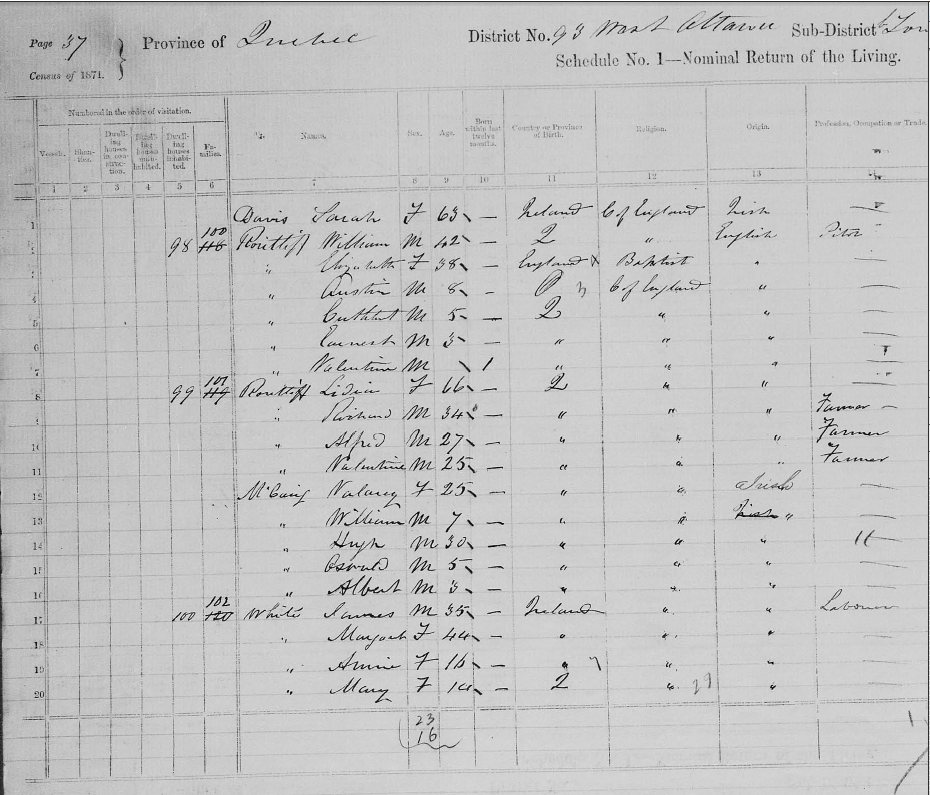 Page 37 Province of Quebec District No. 93 West Ottawa Sub-District
Census of 1871. Schedule No. 1—Nominal Return of the Living.
Numbered in the order of visitation.
Vessels. Shanties. Dwelling houses in construction. Dwelling houses uninhabited. Dwelling houses inhabited. Families. Names. Sex. Age. Born within last twelve months. Country or Province of Birth. Religion. Origin. Profession, Occupation or Trade.
1 2 3 4 5 6 7 8 9 10 11 12 13 14
1 Davis Sarah F 63 — Ireland C of England Irish —
2 98 118 100 Routliff William M 42 — Q " English
3 " Elizabeth F 38 — England X Baptist " —
4 " Austin M 8 — O 3 C of England " —
5 " Cuthbert M 5 — Q " " —
6 " Earnest M 3 — " " " —
7 " Valentine M 1 " " "
8 99 119 101 Routliff Lidia F 66 — Q " " —
9 " Richard M 34 — " " " Farmer —
10 " Alfred M 27 — " " " Farmer
11 " Valentine M 25 — " " " Farmer
12 McCaig F 25 — " " Irish —
13 " William M 7 — " " Irish " —
14 " Hugh M 30 — " " "
15 " Oswald M 5 — " " " —
16 " Albert M 3 — " " " —
17 100 120 102 White James M 35 — Ireland " " Labourer
18 " Margaret F 44 — " " " —
19 " Annie F 16 — " 7 " " —
20 " Mary F 14 — Q " " —
23
16